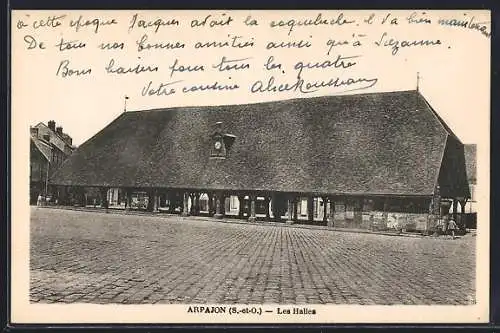 à cette époque Jacques avait la coqueluche. il va bien maintenant
De tous nos bonnes amitiés ainsi qu'à Suzanne.
Bons baisers pour tous les quatre
Votre cousine Alice Rousseau
ARPAJON (S.-et-O.) — Les Halles